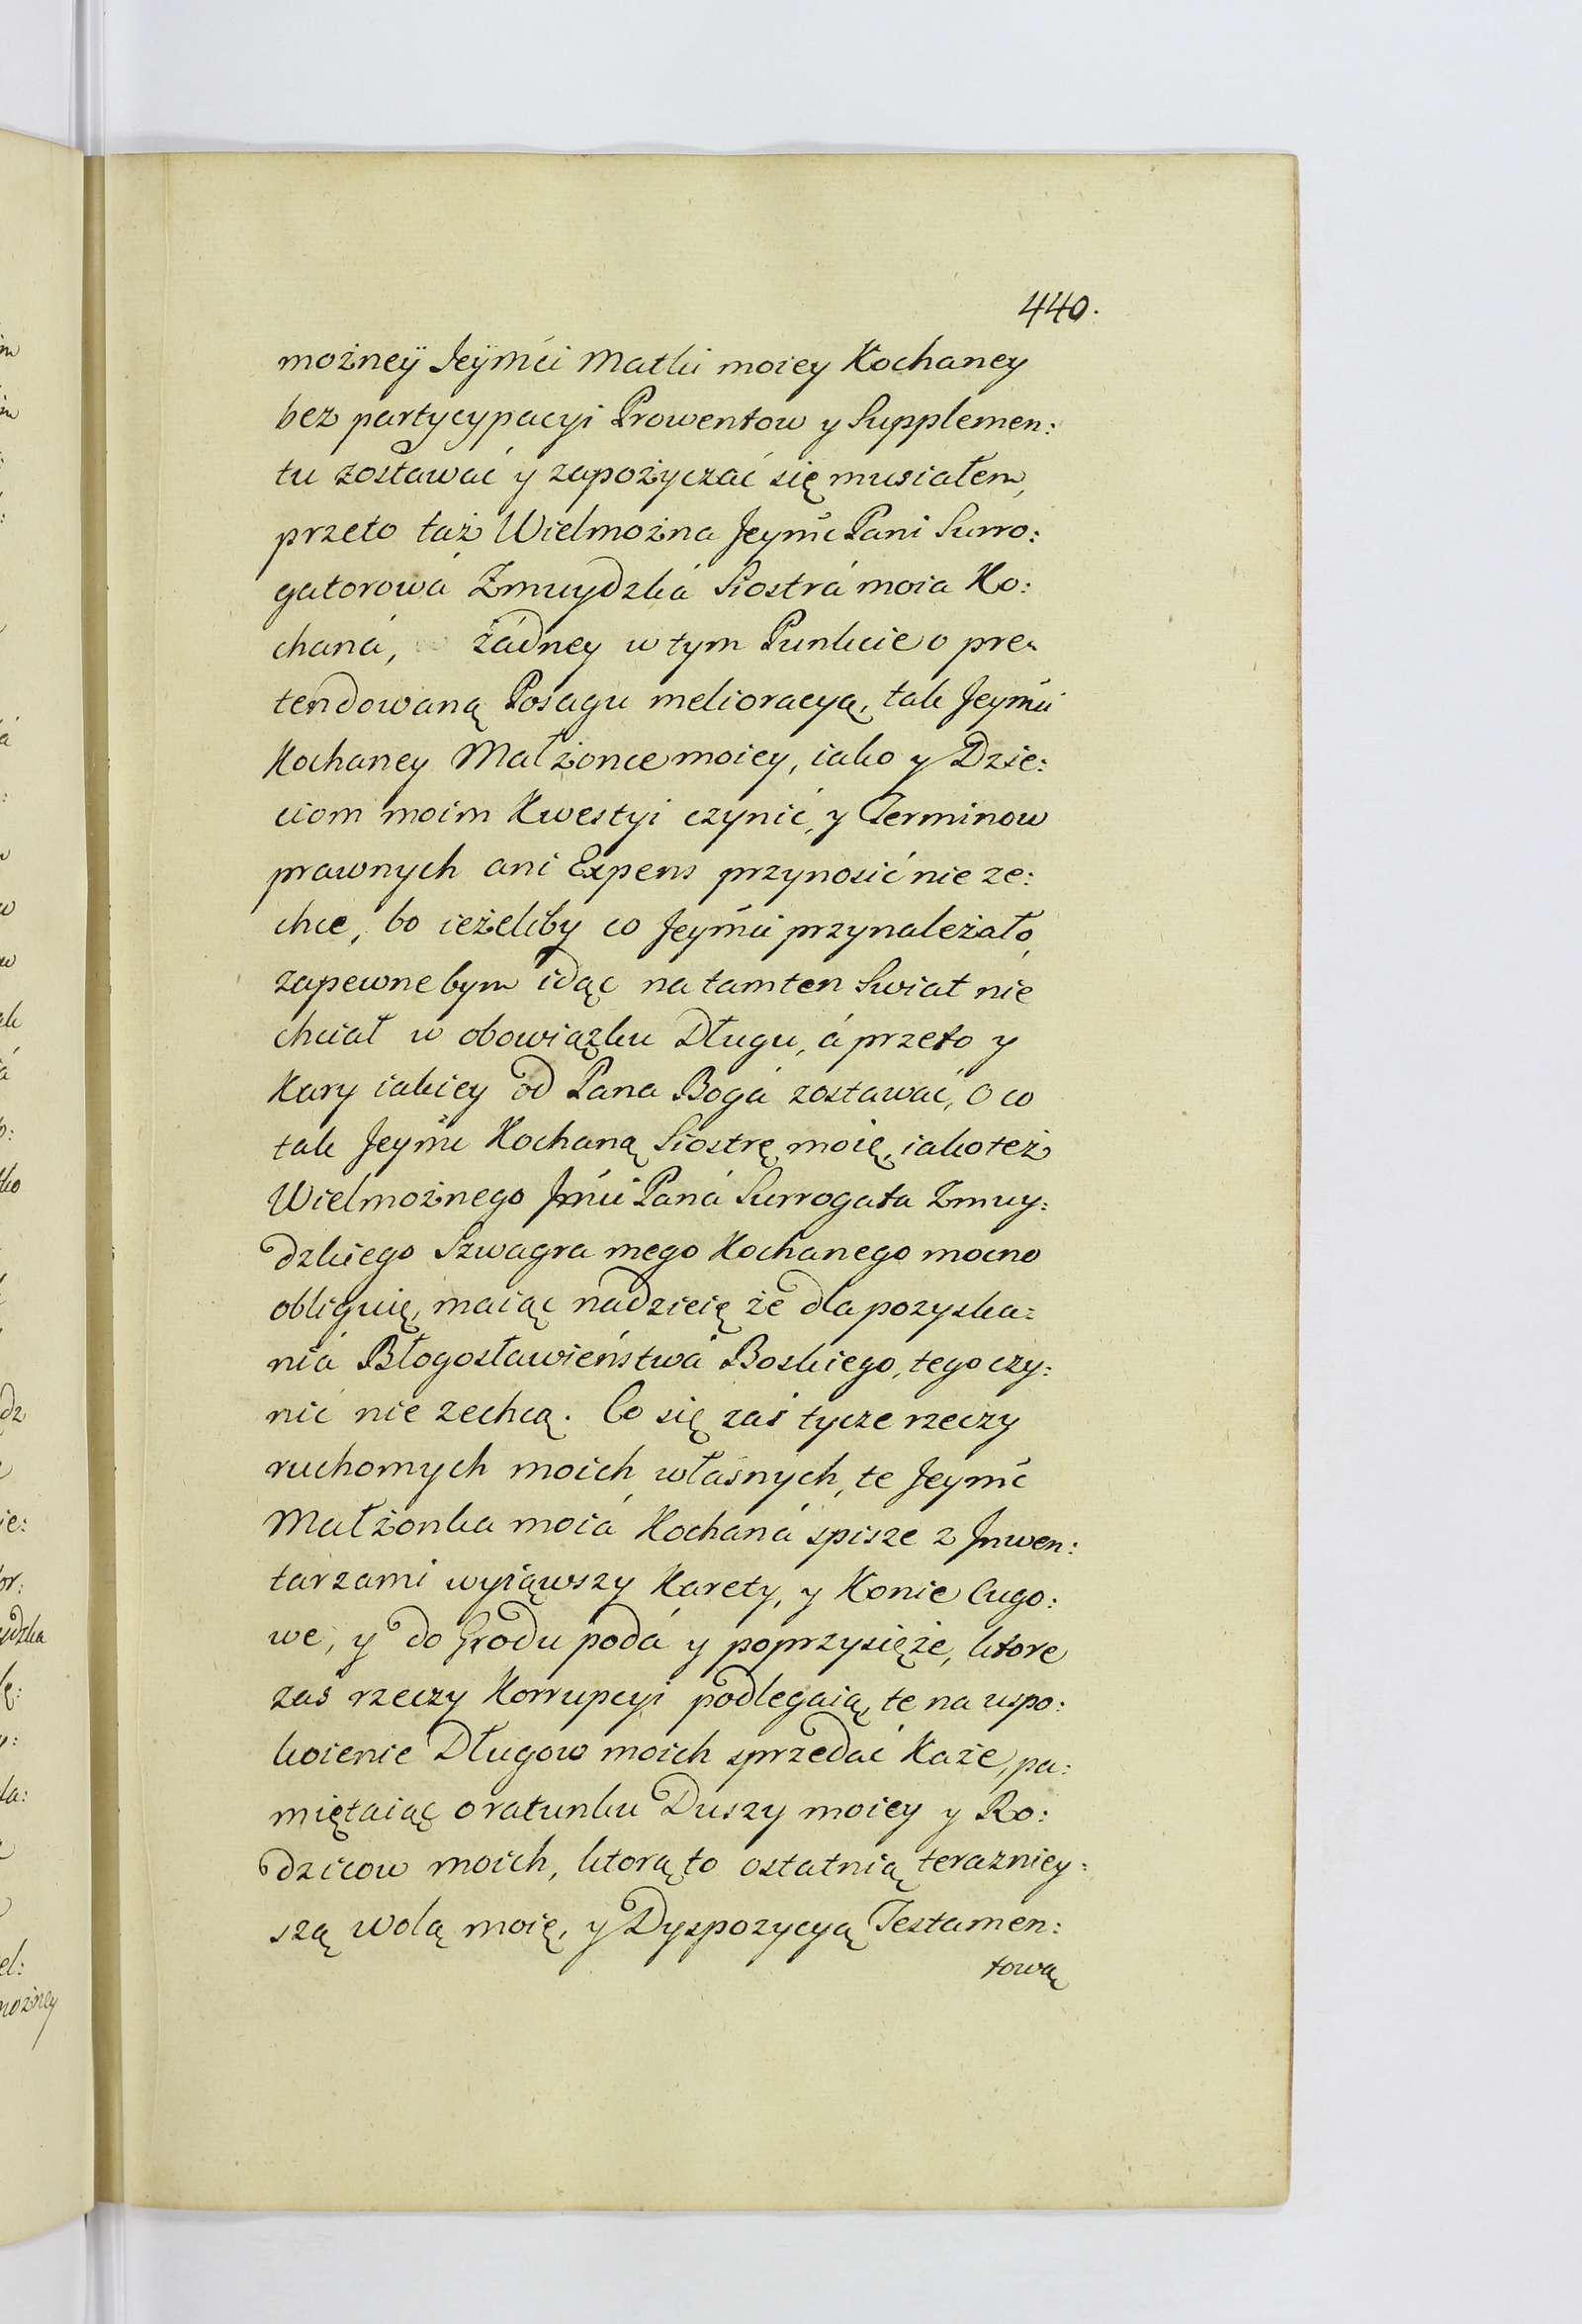 440.
możneÿ Jeÿmći Matki moiey Kochaney
bez partycypacyi Prowentow y Supplemen:
tu zostawać y zapożyczać się musiałem,
przeto taż Wielmożna Jeymć Pani Surro:
gatorowá Zmuydzká Siostrá moia Ko:
chaná, żádney w tym Punkcie o pre:
tendowaną Posagu melioracyą, tak Jeymći
Kochaney Małżonce moiey, iako y Dzie:
ciom moim Kwestyi czynić, y Terminow
prawnych ani Expens przynosić nie ze:
chce, bo ieżeliby co Jeymći przynależało,
zapewne bym idąc na tamten Swiat nie
chciał w obowiązku Długu, á przeto y
Kary iakiey od Pana Bogá zostawać, O co
tak Jeymć Kochaną Siostrę moię, iako też
Wielmożnego Jmći Paná Surrogata Zmuy:
dzkiego Szwagra mego Kochanego mocno
obliguię, maiąc nadzieię że dla pozyska:
niá Błogosławieństwá Boskiego, tego czy:
nić nie zechcą. Co się zaś tycze rzeczy
ruchomych moich własnych, te Jeymć
Małżonka moiá Kochaná spisze z Jnwen:
tarzami wyiąwszy Karety, y Konie Cugo:
we, y do Grodu podá y poprzysięże, ktore
zaś rzeczy Korrupcyi podlegaią, te na uspo:
koienie Długow moich sprzedać Każe, pa:
miętaiąc o ratunku Duszy moiey y Ro:
dzicow moich, ktorą to ostatnią terazniey:
szą wolą moię, y Dyspozycyą Testamen:
tową